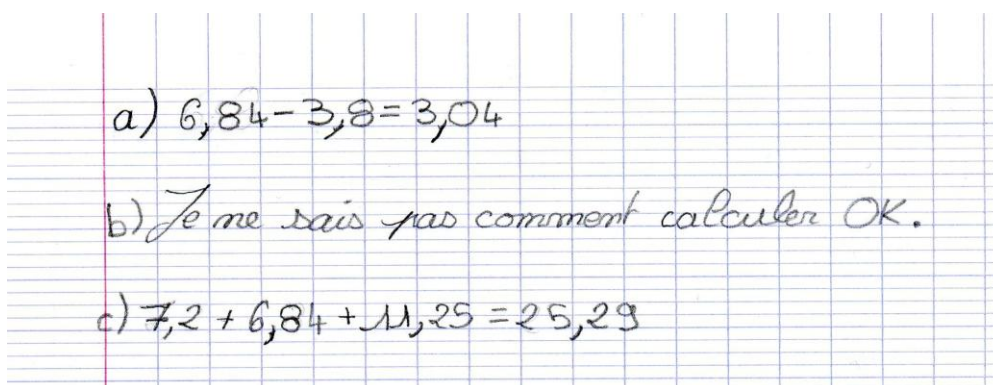 a) 6,84-3,8=3,04
b) Je ne sais pas comment calculer OK.
c) 7,2 + 6,84 + 11,25 = 25,29